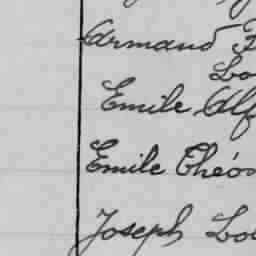 Armand
Emile Alf
Emile Théo
Joseph Lo